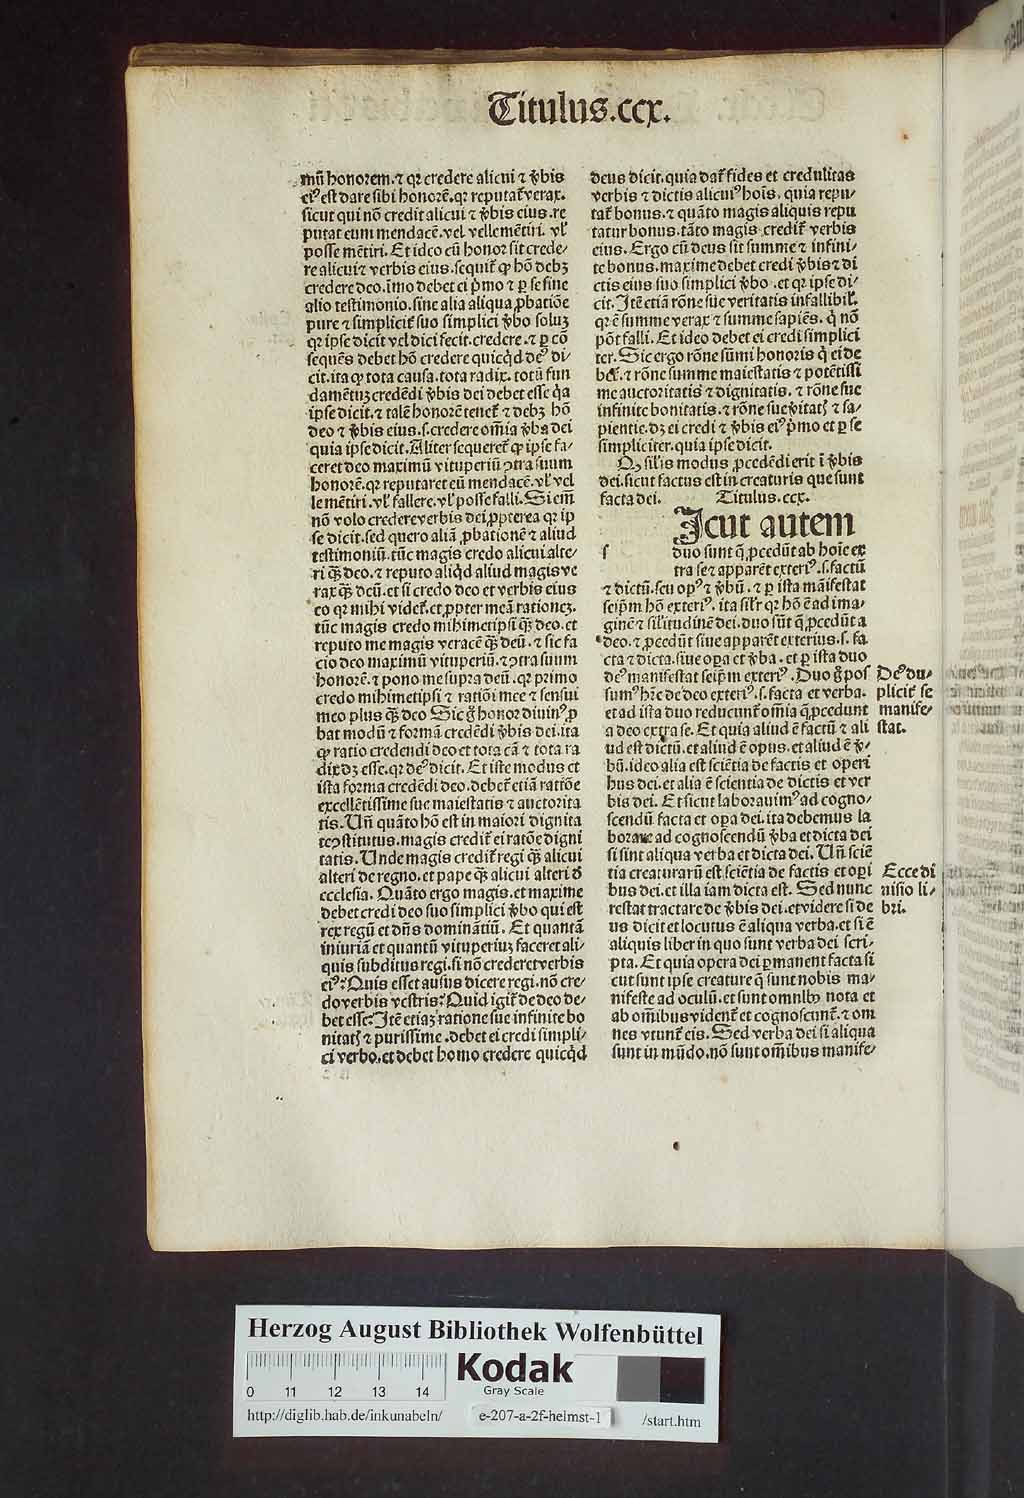 Titulus.ccx.
mū honorem.⁊ qꝛ credere alicui ⁊ v̄bis
eiꝰ est dare sibi honorē.qꝛ reputat̄ verax.
sicut qui nō credit alicui ⁊ v̄bis eius.re
putat eum mendacē.vel velle mētiri. vl̓
posse mētiri. Et ideo cū honor sit crede⸗
re alicui ⁊ verbis eius.sequit̄ ꝙ hō debꝫ
credere deo.īmo debet ei p̄mo ⁊ ꝑ se sine
alio testimonio.sine alia aliqua ꝓbatiōe
pure ⁊ simplicit̄ suo simplici v̄bo soluꝫ
qꝛ ipse dicit vel dici fecit.credere.⁊ ꝑ cō
sequēs debet hō credere quicq̇d deꝰ di⸗
cit.ita ꝙ tota causa.tota radix.totū fun
damētuꝫ credēdi v̄bis dei debet esse q̇a
ipse dicit.⁊ talē honorē tenet̄ ⁊ debꝫ hō
deo ⁊ v̄bis eius.s.credere om̄ia v̄ba dei
quia ipse dicit.Aliter sequeret̄ ꝙ ipse fa⸗
ceret deo maximū vituperiū ꝯtra suum
honorē.qꝛ reputaret eū mendacē.vl̓ vel
le mētiri.vl̓ fallere.vl̓ posse falli.Si em̄
nō volo credere verbis dei ꝓpterea qꝛ ip
se dicit.sed quero aliā ꝓbationē ⁊ aliud
testimoniū.tūc magis credo alicui alte⸗
ri q̄ꝫ deo.⁊ reputo aliq̇d aliud magis ve
rax q̄ꝫ deū.et si credo deo et verbis eius
eo qꝛ mihi videt̄.et ꝓpter meā rationeꝫ.
tūc magis credo mihimetipsi q̄ꝫ deo.et
reputo me magis veracē q̄ꝫ deū.⁊ sic fa
cio deo maximū vituperiū.⁊ ꝯtra suum
honorē.⁊ pono me supra deū.qꝛ primo
credo mihimetipsi ⁊ ratiōi mee ⁊ sensui
meo plus q̄ꝫ deo Sic g̊ honor diuinꝰ ꝓ
bat modū ⁊ formā credēdi v̄bis dei.ita
ꝙ ratio credendi deo et tota cā ⁊ tota ra
dix dꝫ esse.qꝛ deꝰ dicit. Et iste modus et
ista forma credēdi deo.debet̄ etiā ratiōe
excellētissime sue maiestatis ⁊ auctorita
tis.Un̄ quāto hō est in maiori dignita
te ꝯstitutus.magis credit̄ ei ratōe digni
tatis.Unde magis credit̄ regi q̄ꝫ alicui
alteri de regno.et pape q̄ꝫ alicui alteri d̄
ecclesia. Quāto ergo magis.et maxime
debet credi deo suo simplici v̄bo qui est
rex regū et dn̄s dominātiū. Et quantā
iniuriā et quantū vituperiuꝫ faceret ali⸗
quis subditus regi.si nō crederet verbis
eiꝰ? Quis esset ausus dicere regi.nō cre⸗
do verbis vestris? Quid igit̄ de deo de⸗
bet esse? Itē etiaꝫ ratione sue infinite bo
nitatꝭ ⁊ purissime.debet ei credi simpli⸗
ci verbo.et debet homo credere quicq̇d
deus dicit.quia dat̄ fides et credulitas
verbis ⁊ dictis alicuiꝰ hoīs. quia repu⸗
tat̄ bonus.⁊ quāto magis aliquis repu
tatur bonus.tāto magis credit̄ verbis
eius. Ergo cū deus sit summe ⁊ infini⸗
te bonus.maxime debet credi v̄bis ⁊ di
ctis eius suo simplici v̄bo.et qꝛ ipse di⸗
cit.Itē etiā rōne sue veritatis infallibil̓.
qꝛ ē summe verax ⁊ summe sapiēs. q̇ nō
pōt falli. Et ideo debet ei credi simplici
ter. Sic ergo rōne sūmi honoris q̇ ei de
bet̄.⁊ rōne summe maiestatis ⁊ potētissi
me auctoritatis ⁊ dignitatis.⁊ rōne sue
infinite bonitatis.⁊ rōne sue v̄itatꝭ ⁊ sa⸗
pientie.dꝫ ei credi ⁊ v̄bis eiꝰ p̄mo et ꝑ se
simpliciter.quia ipse dicit.
Qꝙ sil̓is modus ꝓcedēdi erit ī v̄bis
dei.sicut factus est in creaturis que sunt
facta dei. Titulus.ccx.
s Icut autem
duo sunt q̄ ꝓcedūt ab hoīe ex
tra se ⁊ apparēt exteriꝰ.s.factū
⁊ dictū.seu opꝰ ⁊ v̄bū.⁊ ꝑ ista māifestat
seip̄m hō exteriꝰ. ita sil̓r qꝛ hō ē ad ima⸗
ginē ⁊ sil̓itudinē dei.duo sūt q̄ ꝓcedūt a
deo.⁊ ꝓcedūt siue apparēt exterius.s.fa
cta ⁊ dicta.siue oꝑa et v̄ba.et ꝑ ista duo
deꝰ manifestat seip̄m exteriꝰ. Duo g̊ pos
sumꝰ hr̄e de deo exteriꝰ.s.facta et verba.
et ad ista duo reducunt̄ om̄ia q̄ ꝓcedunt
a deo extra se. Et quia aliud ē factū ⁊ ali
ud est dictū.et aliud ē opus.et aliud ē v̄⸗
bū.ideo alia est sciētia de factis et operi
bus dei.et alia ē scientia de dictis et ver
bis dei. Et sicut laborauimꝰ ad cogno⸗
scendū facta et oꝑa dei.ita debemus la
borare ad cognoscendū v̄ba et dicta dei
si sint aliqua verba et dicta dei. Un̄ sciē
tia creaturarū est sciētia de factis et oꝑi
bus dei.et illa iam dicta est. Sed nunc
restat tractare de v̄bis dei.et videre si de
us dicit et locutus ē aliqua verba.et si ē
aliquis liber in quo sunt verba dei scri⸗
pta. Et quia opera dei ꝑmanent facta si
cut sunt ipse creature q̄ sunt nobis ma⸗
nifeste ad oculū.et sunt omnibꝫ nota et
ab om̄ibus vident̄ et cognoscunt̄.⁊ om
nes vtunt̄ eis. Sed verba dei si aliqua
sunt in mūdo.nō sunt om̄ibus manife⸗
Deꝰ du⸗
plicit̄ se
manife⸗
stat.
Ecce di
uisio li⸗
bri.
Herzog August Bibliothek Wolfenbüttel
Kodak
Gray Scale
0 11 12 13 14
http://diglib.hab.de/inkunabeln/ e-207-a-2f-helmst-1 /start.htm